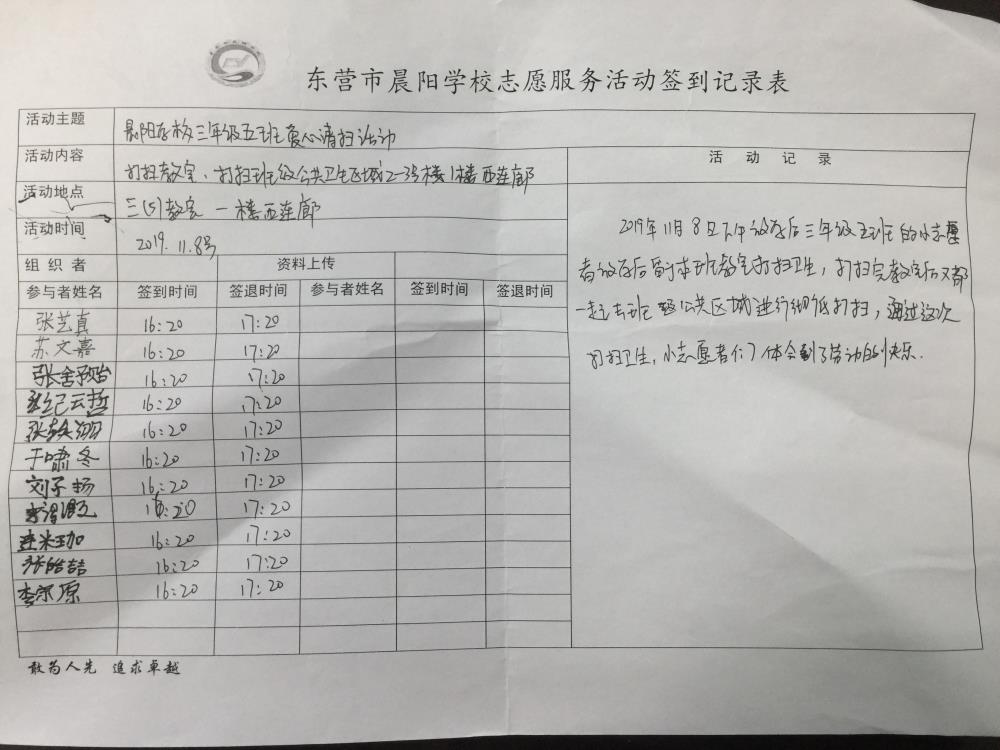 东营市晨阳学校志愿服务活动签到记录表
活动主题 晨阳学校三年级五班爱心清扫活动
活动内容 打扫教室、打扫班级公共卫生区域2-3号楼1楼西连廊
活动地点 三(5)教室 一楼西连廊
活动时间 2019.11.8号
组织者 资料上传
参与者姓名 签到时间 签退时间 参与者姓名 签到时间 签退时间
张艺真 16:20 17:20
苏文嘉 16:20 17:20
张舍予怡 16:20 17:20
张纪云哲 16:20 17:20
16:20 17:20
于啸冬 16:20 17:20
刘子扬 16:20 17:20
16:20 17:20
16:20 17:20
张皓喆 16:20 17:20
李尔原 16:20 17:20
活动记录
2019年11月8日下午放学后三年级五班的小志愿
者放学后留本班教室打扫卫生,打扫完教室后又都
一起去班级公共区域进行彻底打扫,通过这次
打扫卫生,小志愿者们体会到了劳动的快乐.
敢为人先 追求卓越